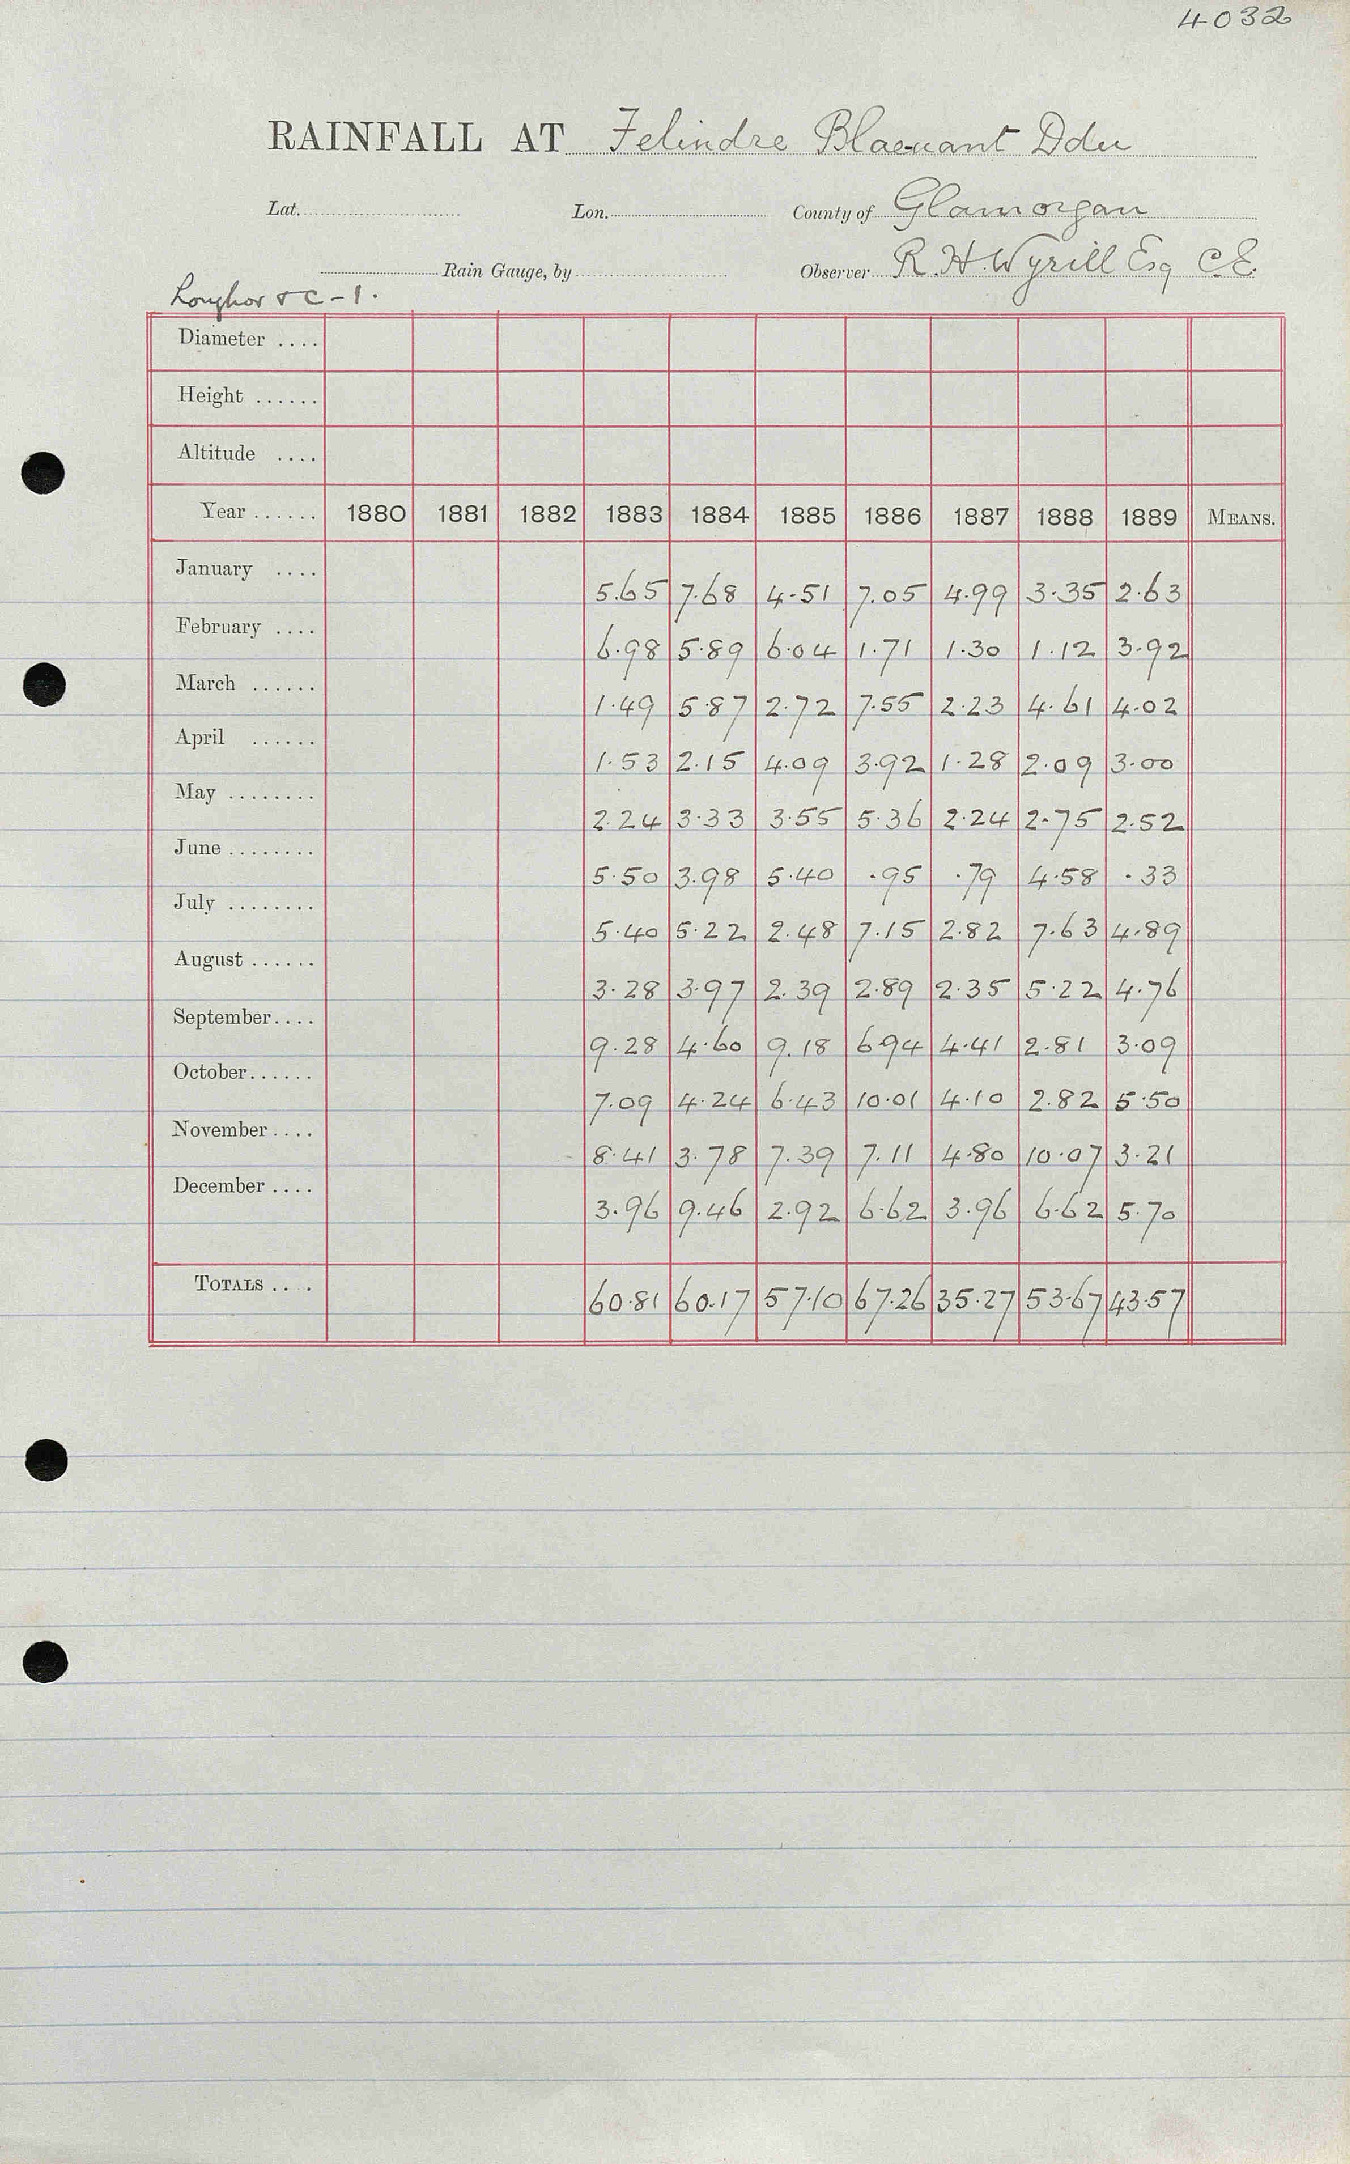 4032
RAINFALL AT Felindre Blaenant Ddu
Lat. Lon. County of Glamorgan
Rain Gauge, by Observer R. H. Wyrill Esq C.E.
Loughor & C - 1.
Diameter ....
Height ......
Altitude ....
Year ...... 1880 1881 1882 1883 1884 1885 1886 1887 1888 1889 MEANS.
January .... 5.65 7.68 4.51 7.05 4.99 3.35 2.63
February .... 6.98 5.89 6.04 1.71 1.30 1.12 3.92
March ...... 1.49 5.87 2.72 7.55 2.23 4.61 4.02
April ...... 1.53 2.15 4.09 3.92 1.28 2.09 3.00
May ........ 2.24 3.33 3.55 5.36 2.24 2.75 2.52
June ........ 5.50 3.98 5.40 .95 .79 4.58 .33
July ........ 5.40 5.22 2.48 7.15 2.82 7.63 4.89
August ...... 3.28 3.97 2.39 2.89 2.35 5.22 4.76
September.... 9.28 4.60 9.18 6.94 4.41 2.81 3.09
October...... 7.09 4.24 6.43 10.01 4.10 2.82 5.50
November .... 8.41 3.78 7.39 7.11 4.80 10.07 3.21
December .... 3.96 9.46 2.92 6.62 3.96 6.62 5.70
TOTALS .... 60.81 60.17 57.10 67.26 35.27 53.67 43.57